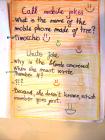 Call mobile jokes
What is the name of the
mobile phone made of tree?
Timocchio
Ununto Joke
Why is the blonde concerned
when she must write
number 11?
"11"
Because, she doesn't known, which
number goes first.